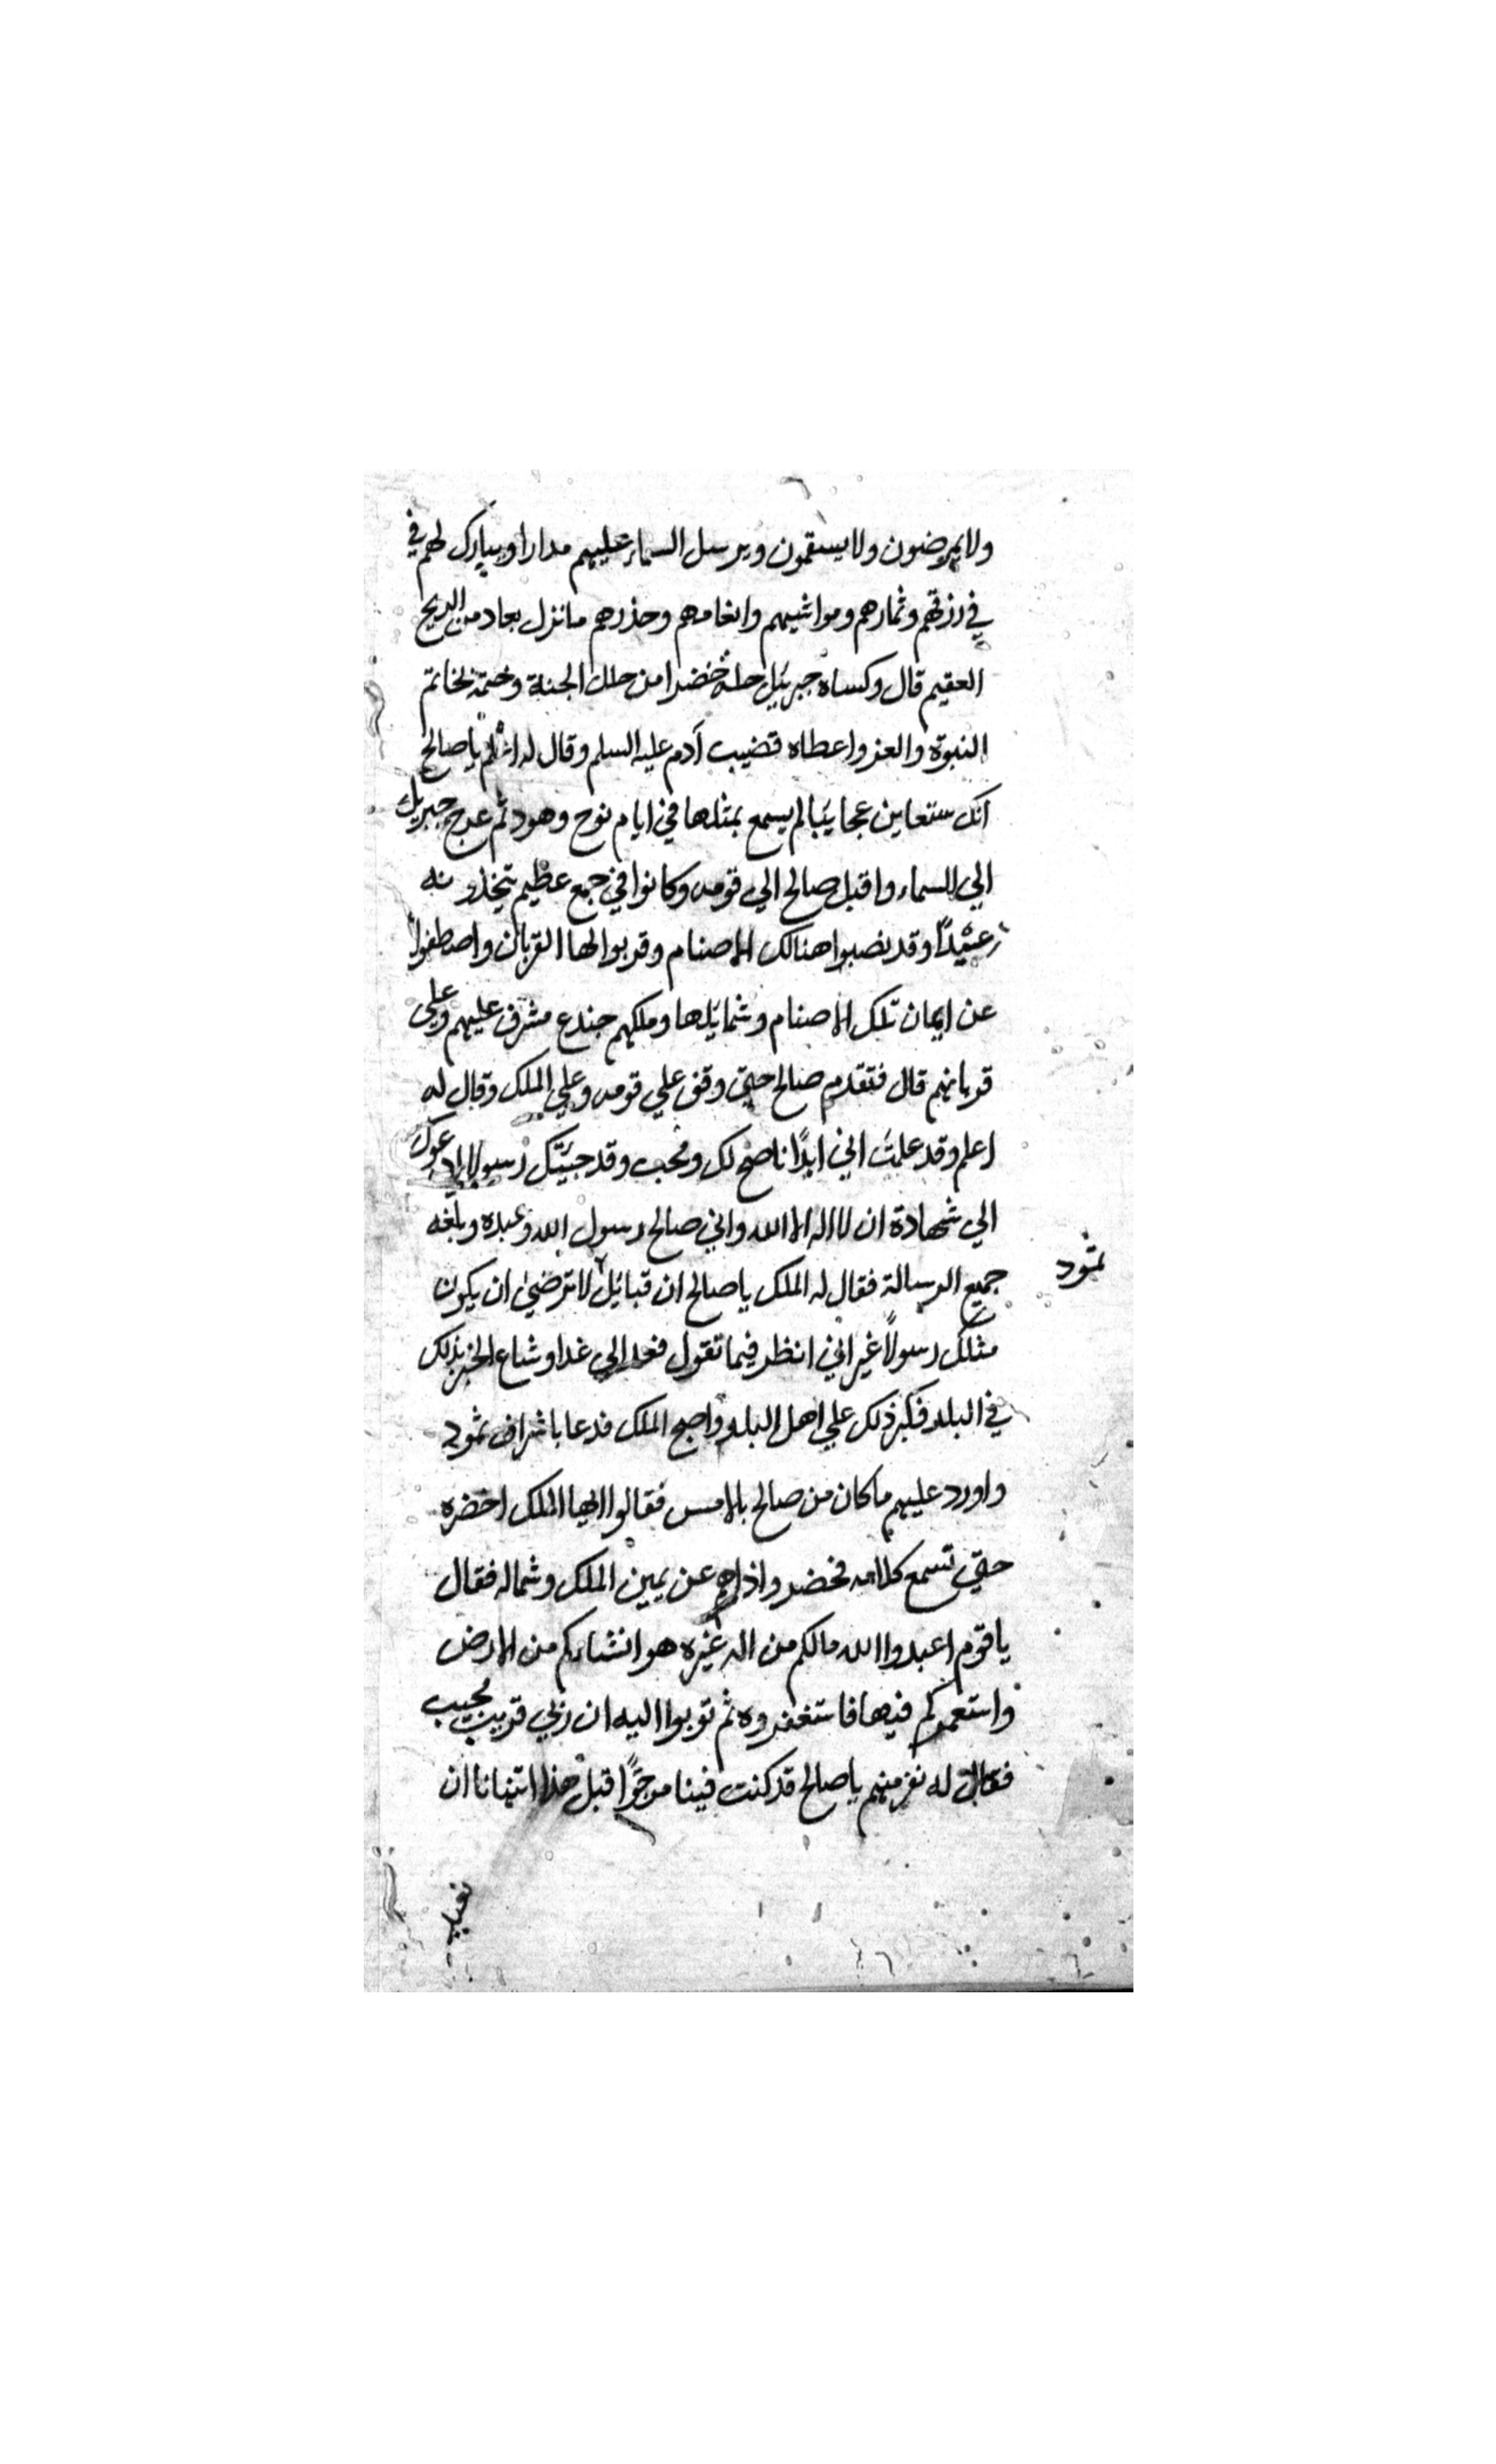 ولا يمرضون ولا يسقمون ويرسل السماء عليهم مدارا ويبارك لهم في
في رزقهم وثمارهم ومواشيهم وانعامهم وحذرهم ما نزل بعاد من الريح
العقيم قال وكساه جبريل حلة خضرا من حلل الجنة وختمه بخاتم
النبوة والعز واعطاه قضيب آدم عليه السلم وقال له يا صالح
انك ستعاين عجايبا لم يسمع بمثلها في ايام نوح وهود ثم عرج جبريل
الي السماء واقبل صالح الي قومه وكانوا في جمع عظيم يتخذونه
عيدا وقد نصبوا هنالك الاصنام وقربوا لها القربان واصطفوا
عن ايمان تلك الاصنام وشمايلها وملكهم جندع مشرف عليهم وعلي
قربانهم قال فتقدم صالح حتي وقف علي قومه وعلي الملك وقال له
اعلم وقد علمت اني ابدًا ناصح لك ومحب وقد جيتك رسولا ادعوك
الي شهادة ان لا اله الا الله واني صالح رسول الله وعبده وبلغه
جميع الرسالة فقال له الملك يا صالح ان قبائل لا ترضي ان يكون
ثمود
مثلك رسولًا غير اني انظر فيما تقول فعد الي غدا وشاع الخبر بذلك
في البلد فكبر ذلك علي اهل البلد واصبح الملك فدعا باشراف ثمود
واورد عليهم ما كان من صالح بالامس فقالوا ايها الملك احضره
حتي تسمع كلامه فحضر واذا هم عن يمين الملك وشماله فقال
يا قوم اعبدوا الله مالكم من اله غيره هو انشاءكم من الارض
واستعمركم فيها فاستغفروه ثم توبوا اليه ان ربي قريب مجيب
فقال له نفر منهم يا صالح قد كنت فينا مرجوًا قبل هذا اتنهانا ان
نعبد